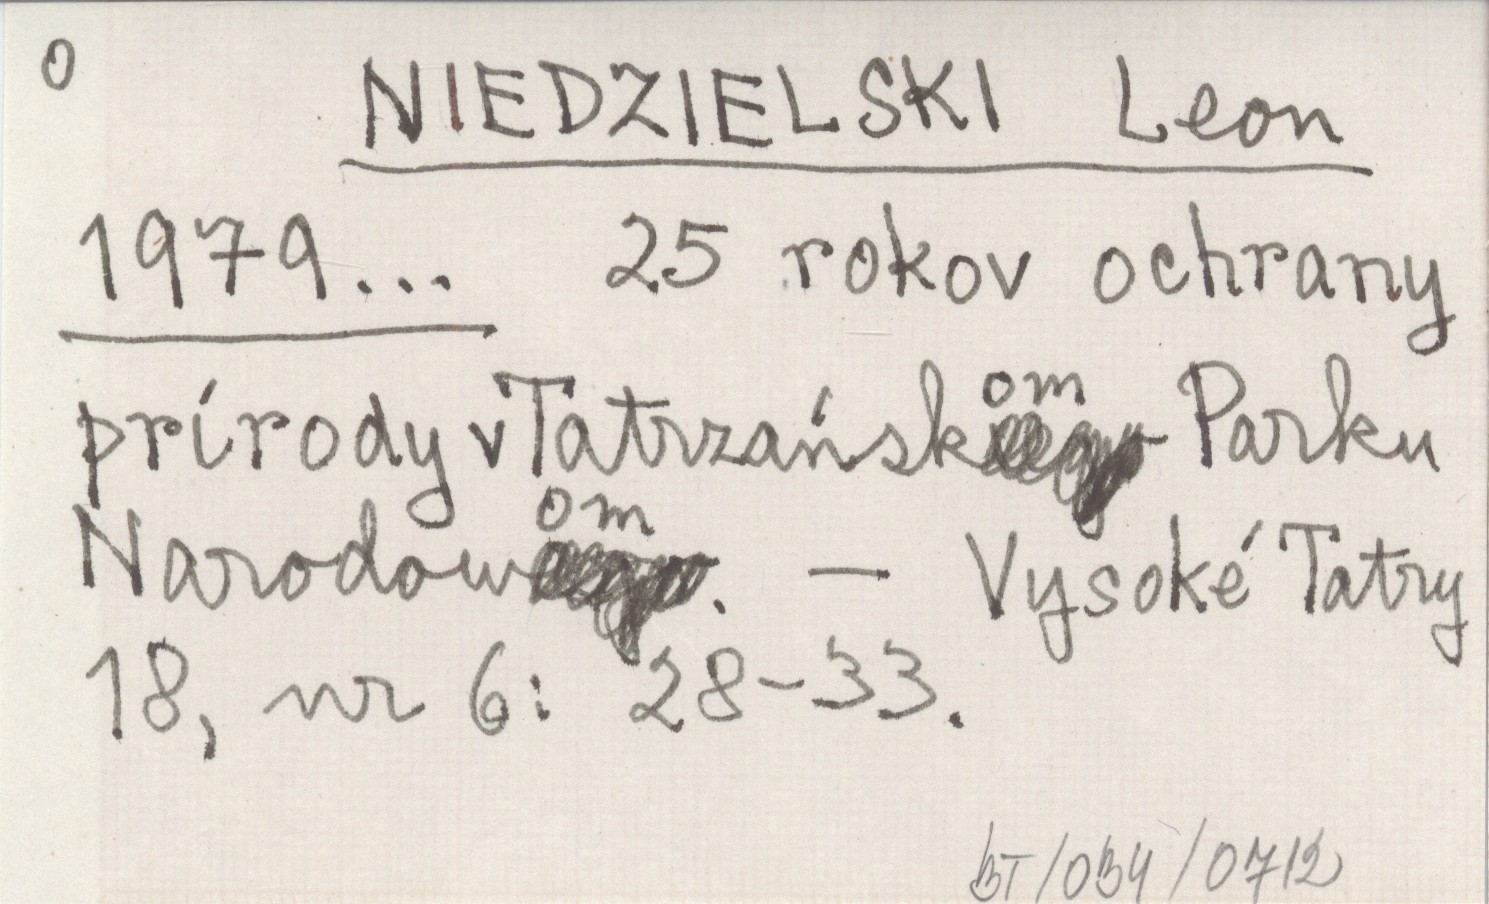 O
NIEDZIELSKI Leon
1979... 25 rokov ochrany
prírody v Tatrzańskom Parku
Narodowom. - Vysoké Tatry
18, nr 6: 28-33.
BT/034/0712